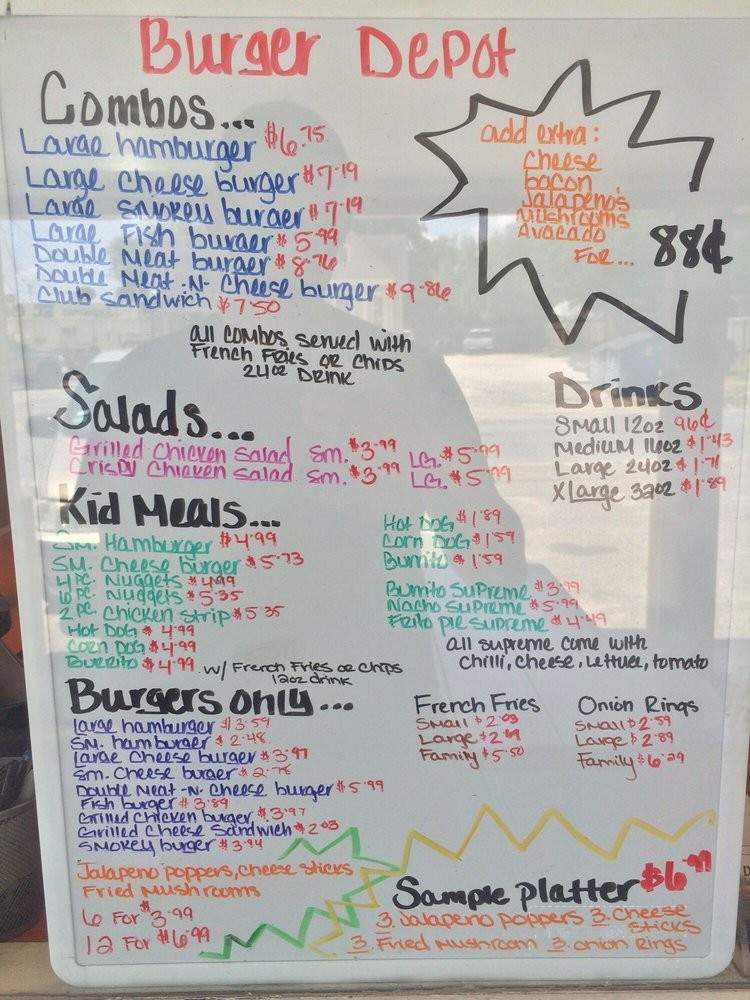 Burger Depot
Combos...
Large hamburger $6.75
Large Cheese burger $7.19
Large Smokey burger $7.19
Large Fish burger $5.99
Double Meat burger $8.76
Double Meat -N- Cheese burger $9.86
Club sandwich $7.50
all combos served with
French Fries or Chips
24oz Drink
add extra:
cheese
bacon
Jalapeno's
Mushrooms
Avocado
For... 88¢
Salads...
Grilled Chicken Salad Sm. $3.99 LG. $5.99
Crispy Chicken Salad Sm. $3.99 LG. $5.99
Drinks
Small 12oz 96¢
Medium 16oz $1.43
Large 24oz $1.71
XLarge 32oz $1.89
Kid Meals...
SM. Hamburger $4.99
SM. Cheese burger $5.73
4 PC. Nuggets $4.99
6 PC. Nuggets $5.35
2 PC. Chicken Strip $5.35
Hot Dog $4.99
Corn Dog $4.99
Burrito $4.99 w/ French Fries or Chips
12oz drink
Hot Dog $1.89
Corn Dog $1.59
Burrito $1.59
Burrito Supreme $3.99
Nacho Supreme $5.99
Frito pie supreme $4.49
all supreme come with
chilli, cheese, lettuce, tomato
Burgers only...
large hamburger $3.59
SM. hamburger $2.48
large cheese burger $3.97
Sm. Cheese burger $2.76
Double Meat -N- Cheese burger $5.99
Fish burger $3.89
Grilled Chicken burger $3.97
Grilled Cheese Sandwich $2.03
Smokey burger $3.94
French Fries
Small $2.03
Large $2.69
Family $5.50
Onion Rings
Small $2.59
Large $2.89
Family $6.29
Jalapeno poppers, cheese sticks
Fried Mushrooms
6 For $3.99
12 For $6.99
Sample Platter $6.99
3. Jalapeno poppers 3. cheese
sticks
3. Fried Mushroom 3. onion Rings